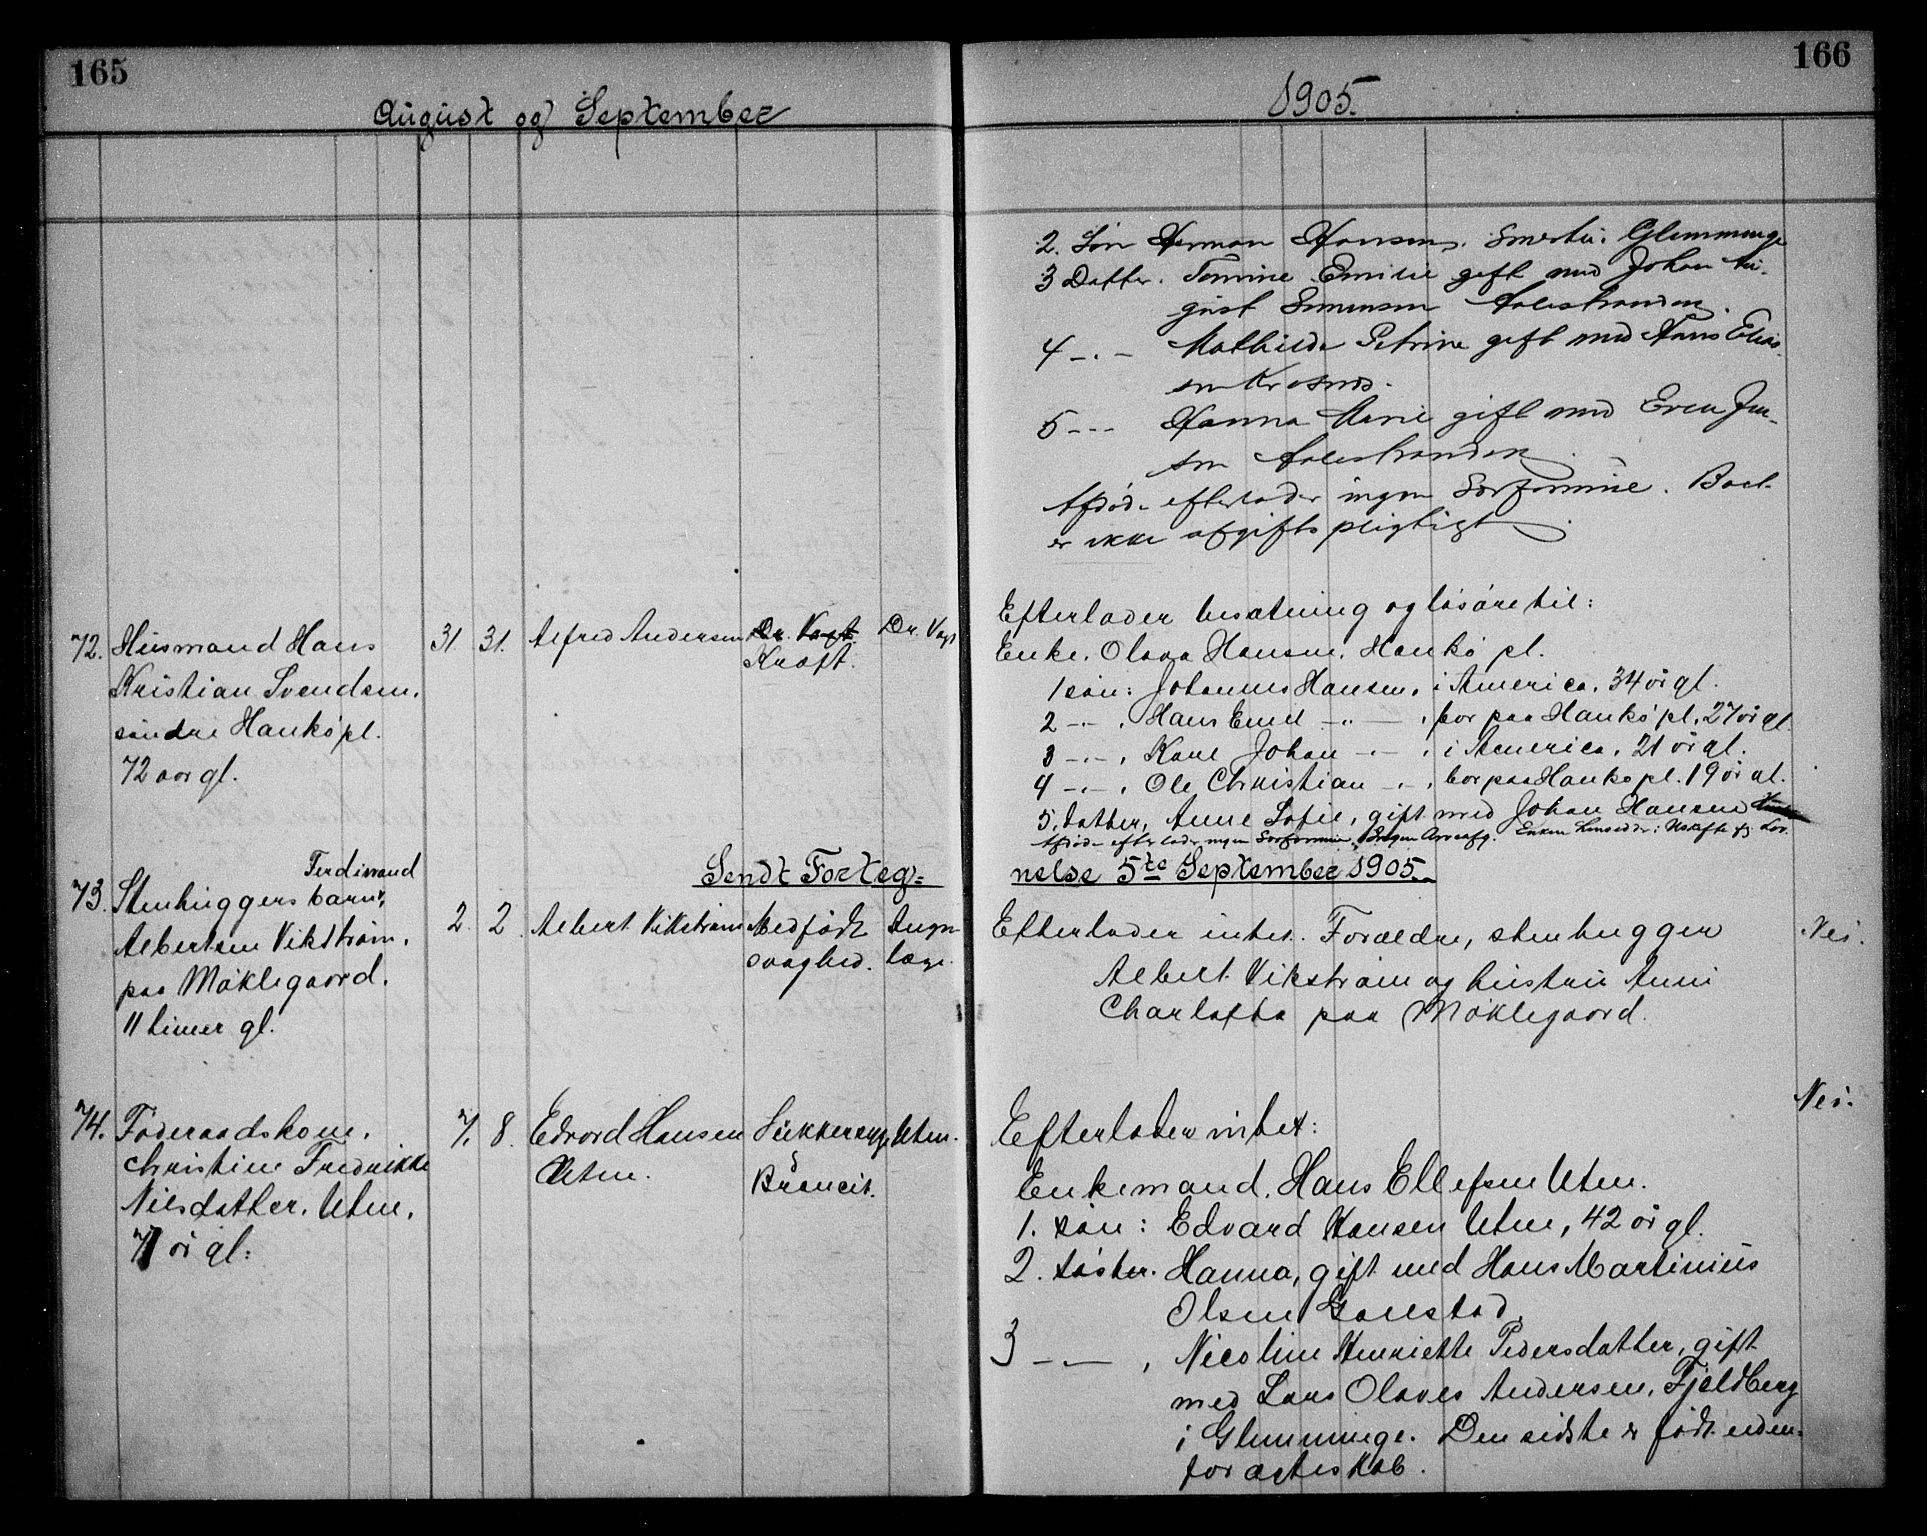 165
August og September
72. Husmand Hans
Kristian Svendsen,
søndre Hankö pl.
72 aar gl.
31 31. Alfred Andersen Dr. Vogt. Dr. Vogt
Kræft.
Ferdinand
73. Stenhuggers barn
Albertsen Vikstrøm,
paa Møklegaard.
11 timer gl.
Sendt Forteg=
2. 2. Albert Vikstrøm Medfødt Ingen
svaghed. læge.
74. Føderaadskone,
Christine Fredrikke
Nilsdatter, Uten,
71 år gl:
7. 8. Edvard Hansen Sukkersyge Uten.
Uten. Broncit.
166
1905.
2. Søn Herman Hansen, Glemminge
3 Datter. Emilie gift med Johan Au-
gust Simensen
4 -"- Mathilde Petrine gift med Hans Elias-
sen
5 - - - Hanna Marie gift med Even Jen-
sen
Afdøde efterlader ingen Særformue. Boet
er ikke afgiftspligtigt
Efterlader besætning og løsøre til:
Enke, Olava Hansen, Hankö pl.
1 søn: Johannes Hansen, i America, 34 år gl.
2 -"-, Hans Emil -"-, bor paa Hankö pl, 27 år gl
3 -"-, Karl Johan -"-, i America, 21 år gl.
4 -"-, Ole Christian -"-, bor paa Hankö pl. 19 år gl.
5, datter, Anne Sofie, gift med Johan Hansen
Afdøde efterlader ingen Særformue. Ingen Arveafg. Enken hensidder i Uskifte Lov.
nelse 5te September 1905.
Efterlader intet. Forældre, stenhugger
Albert Vikstrøm og hustru Anni
Charlotta paa Møklegaard.
Nei.
Efterlader intet:
Nei.
Enkemand, Hans Ellefsen Uten.
1. søn: Edvard Hansen Uten, 42 år gl.
2. søster. Hanna, gift med Hans Martinius
Olsen
3 -"-, Nicoline Henriette Pedersdatter, gift
med Lars Olaves Andersen, Fjeldberg
i Glemminge. Den sidste er født uden=
for ægteskab.